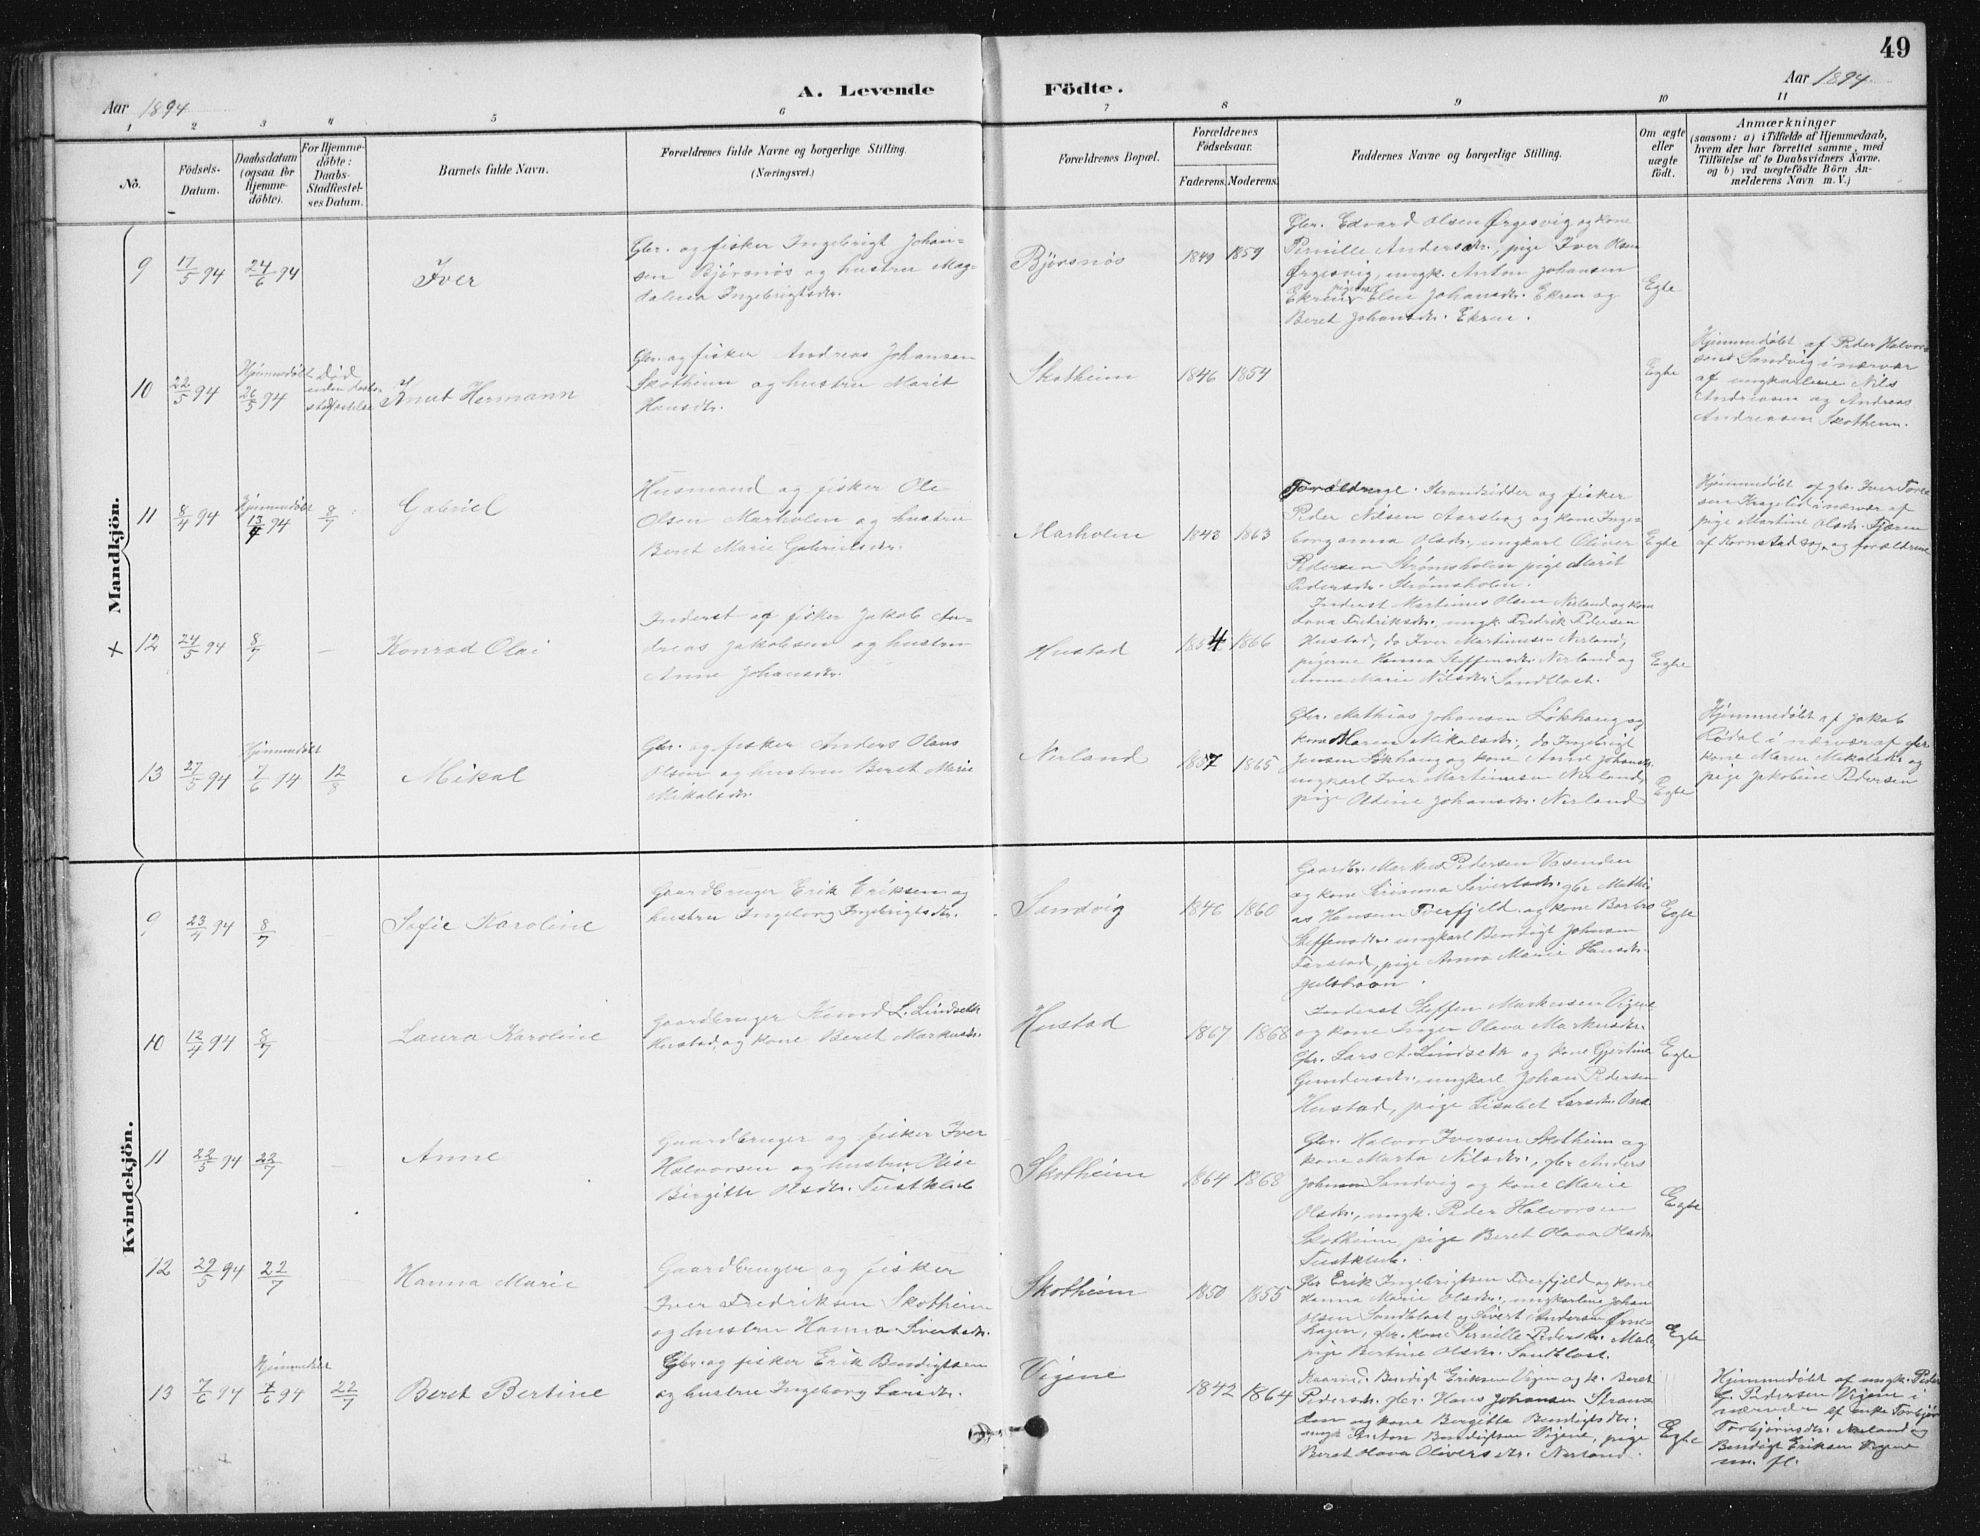 49
Aar 1894
A. Levende
Födte.
Aar 1894
1 2 3 4 5 6 7 8 9 10 11
No.
Födsels-
Datum.
Daabsdatum
(ogsaa for
Hjemme-
döbte).
For Hjemme-
döbte:
Daabs-
Stadfæstel-
ses Datum.
Barnets fulde Navn.
Forældrenes fulde Navne og borgerlige Stilling.
(Næringsvei.)
Forældrenes Bopæl.
Forældrenes
Födselsaar.
Faderens. Moderens.
Faddernes Navne og borgerlige Stilling.
Om ægte
eller
uægte
födt.
Anmærkninger
(saasom: a) i Tilfælde af Hjemmedaab,
hvem der har forrettet samme, med
Tilföielse af to Daabsvidners Navne,
og b) ved uægtefödte Börn An-
melderens Navn m. V.)
Mandkjön.
9
17/5 94
24/6 94
Iver
Gbr. og fisker Ingebrigt Johan-
sen Bjørsnös og hustru Mag-
dalena Ingebrigtsdtr.
Bjørsnös
1849 1859
Gbr. Edvard Olsen Ørgesvig og kone
Pernille Andersdtr., pige Iver Olsen
Ørgesvig, ungk. Anton Johansen
Ekren, pigerne Elen Johansdtr. Ekren og
Beret Johansdtr. Ekren.
Egte
10
22/5 94
Hjemmedöbt
26/5 94
Död
uden daabs
stadfæstelse
Knut Hermann
Gbr. og fisker Andreas Johansen
Skotheim og hustru Marit
Hansdtr.
Skotheim
1846 1854
Egte
Hjemmedöbt af Peder Halvor-
sen Sandvig i nærvær
af ungkarlene Nils
Andreasen og Andreas
Andreasen Skotheim.
11
8/4 94
Hjemmedöbt
13/4 94
8/7
Gabriel
Husmand og fisker Ole
Olsen Marholm og hustru
Beret Marie Gabrielsdtr.
Marholm
1843 1863
Forældrene. Strandsidder og fisker
Peder Nilsen Aarsbog og kone Inge-
borganna Olsdtr., ungkarl Oliver
Pedersen Strømsholm pige Marit
Pedersdtr. Strømsholm.
Egte
Hjemmedöbt af gbr. Iver Tore-
sen i nærvær af
pige Martine Olsdtr. Fjæren
af Kornstad sog. og forældrene
+ 12
24/5 94
8/7
Konrad Olai
Inderst og fisker Jakob An-
dreas Jakobsen og hustru
Anne Johansdtr.
Hustad
1854 1866
Inderst Martinus Olsen Nerland og kone
Lova Fredriksdtr., ungk. Fredrik Pedersen
Hustad, do Iver Martinusen Nerland,
pigerne Hanna Steffensdtr. Nerland og
Anne Marie Nilsdtr. Sandblaat.
Egte
13
27/5 94
Hjemmedöbt
7/6 94
12/8
Mikal
Gbr. og fisker Anders Olaus
Olsen og hustru Beret Marie
Mikalsdtr.
Nerland
1857 1865
Gbr. Mathias Johansen Løkhaug og
kone Maren Mikalsdtr., do Ingebrigt
Jensen Løkhaug og kone Anne Johansdtr.
ungkarl Iver Martinusen Nerland,
pige Oldine Johansdtr. Nerland
Egte
Hjemmedöbt af Jakob
Rødal i nærvær af gbr.
kone Maren Mikalsdtr. og
pige Jakobine Pedersen
Kvindekjön.
9
23/4 94
8/7
Sofie Karoline
Gaardbruger Erik Eriksen og
hustru Ingeborg Ingebrigtsdtr.
Sandvig
1846 1860
Gaardbr. Markus Pedersen Vasenden
og kone Serianna Sivertsdtr. gbr. Mathi-
as Hansen Tverfjeld og kone Barbro
Steffensdtr. ungkarl Bendigt Johnsen
Farstad, pige Anna Marie Hansdtr.
Egte
10
12/4 94
8/7
Laura Karoline
Gaardbruger Konrad L. Lindseth
Hustad og kone Beret Markusdtr.
Hustad
1867 1868
Inderst Steffen Markusen Vigene
og kone Inger Olava Markusdtr.
Gbr. Lars A. Lindseth og kone Gjertine
Gundersdtr., ungkarl Johan Pedersen
Hustad, pige Lisabet Larsdtr.
Egte
11
22/5 94
22/7
Anne
Gaardbruger og fisker Iver
Halvorsen og hustru Olise
Birgitte Olsdtr. Tustkleb
Skotheim
1864 1868
Gbr. Halvor Iversen Skotheim og
kone Marta Nilsdtr., gbr. Anders
Johnsen Sandvig og kone Marie
Olsdtr., ungk. Peder Halvorsen
Skotheim, pige Beret Olava Olsdtr.
Tustkleb.
Egte
12
29/5 94
22/7
Hanna Marie
Gaardbruger og fisker
Iver Fredriksen Skotheim
og hustru Hanna Sivertsdtr.
Skotheim
1850 1855
Gbr Erik Ingebrigtsen Tverfjeld og kone
Hanna Marie Olsdtr., ungkarlene Johan
Olsen Sandblaat og Sivert Andersen Örne-
hagen, gbr. kone Pernille Pedersdtr. Male,
pige Bertine Olsdtr. Sandblaat.
Egte
13
7/6 94
Hjemmedöbt
7/6 94
22/7
Beret Bertine
Gbr. og fisker Erik Bendigtsen
og hustru Ingeborg Larsdtr.
Vigene
1842 1864
Kaarmd. Bendigt Eriksen Vigen og k. Beret
Pedersdtr. gbr. Hans Johansen Stran-
den og kone Bergitta Bendigtsdtr.
ungk. Anton Bendigtsen Vigene, pige
Beret Olava Oliversdtr. Nerland.
Egte
Hjemmedöbt af ungk. Peder
G. Pedersen Vigen i
nærvær af enke Torbjör
Torbjörnsdtr. Nerland og
Bendigt Eriksen Vigene
m. fl.